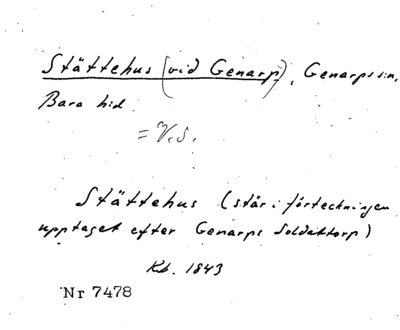 Stättehus (vid Genarp), Genarps sn,
Bara hd.
= V.S.
Stättehus (står i förteckningen
upptaget efter Genarps Soldattorp)
Kb. 1843
Nr 7478